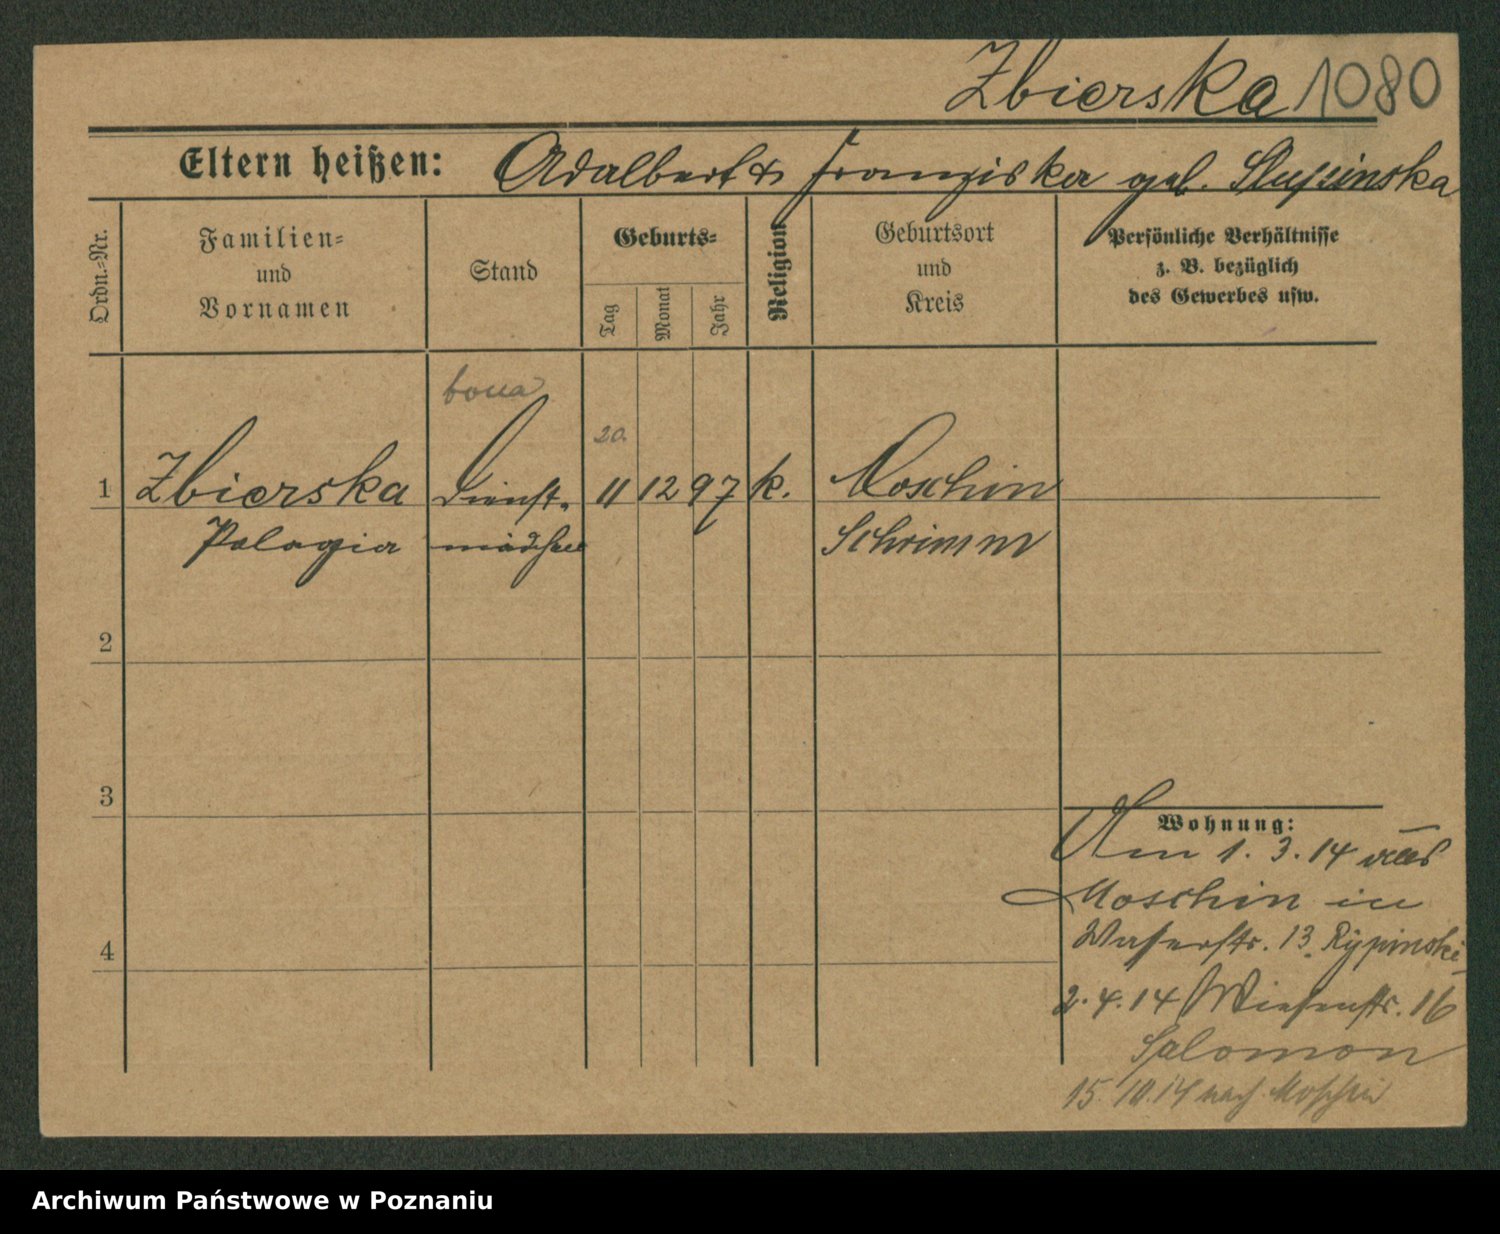 Zbierska 1080
Eltern heißen: Adalbert & Franziska geb. Slupinska
Ordn.=Nr.
Familien=
und
Vornamen
Stand
Geburts=
Tag
Monat
Jahr
Religion
Geburtsort
und
Kreis
Persönliche Verhältnisse
z. B. bezüglich
des Gewerbes usw.
bona
20.
1 Zbierska Dienst- 11 12 97 k. Moschin
Pelagia mädchen Schrimm
2
3
4
Wohnung:
Am 1. 3. 14 aus
Moschin in
Wasserstr. 13. Rypinski
2. 4. 14 Wiesenstr. 16
Salomon
15. 10. 14 nach Moschin
Archiwum Państwowe w Poznaniu